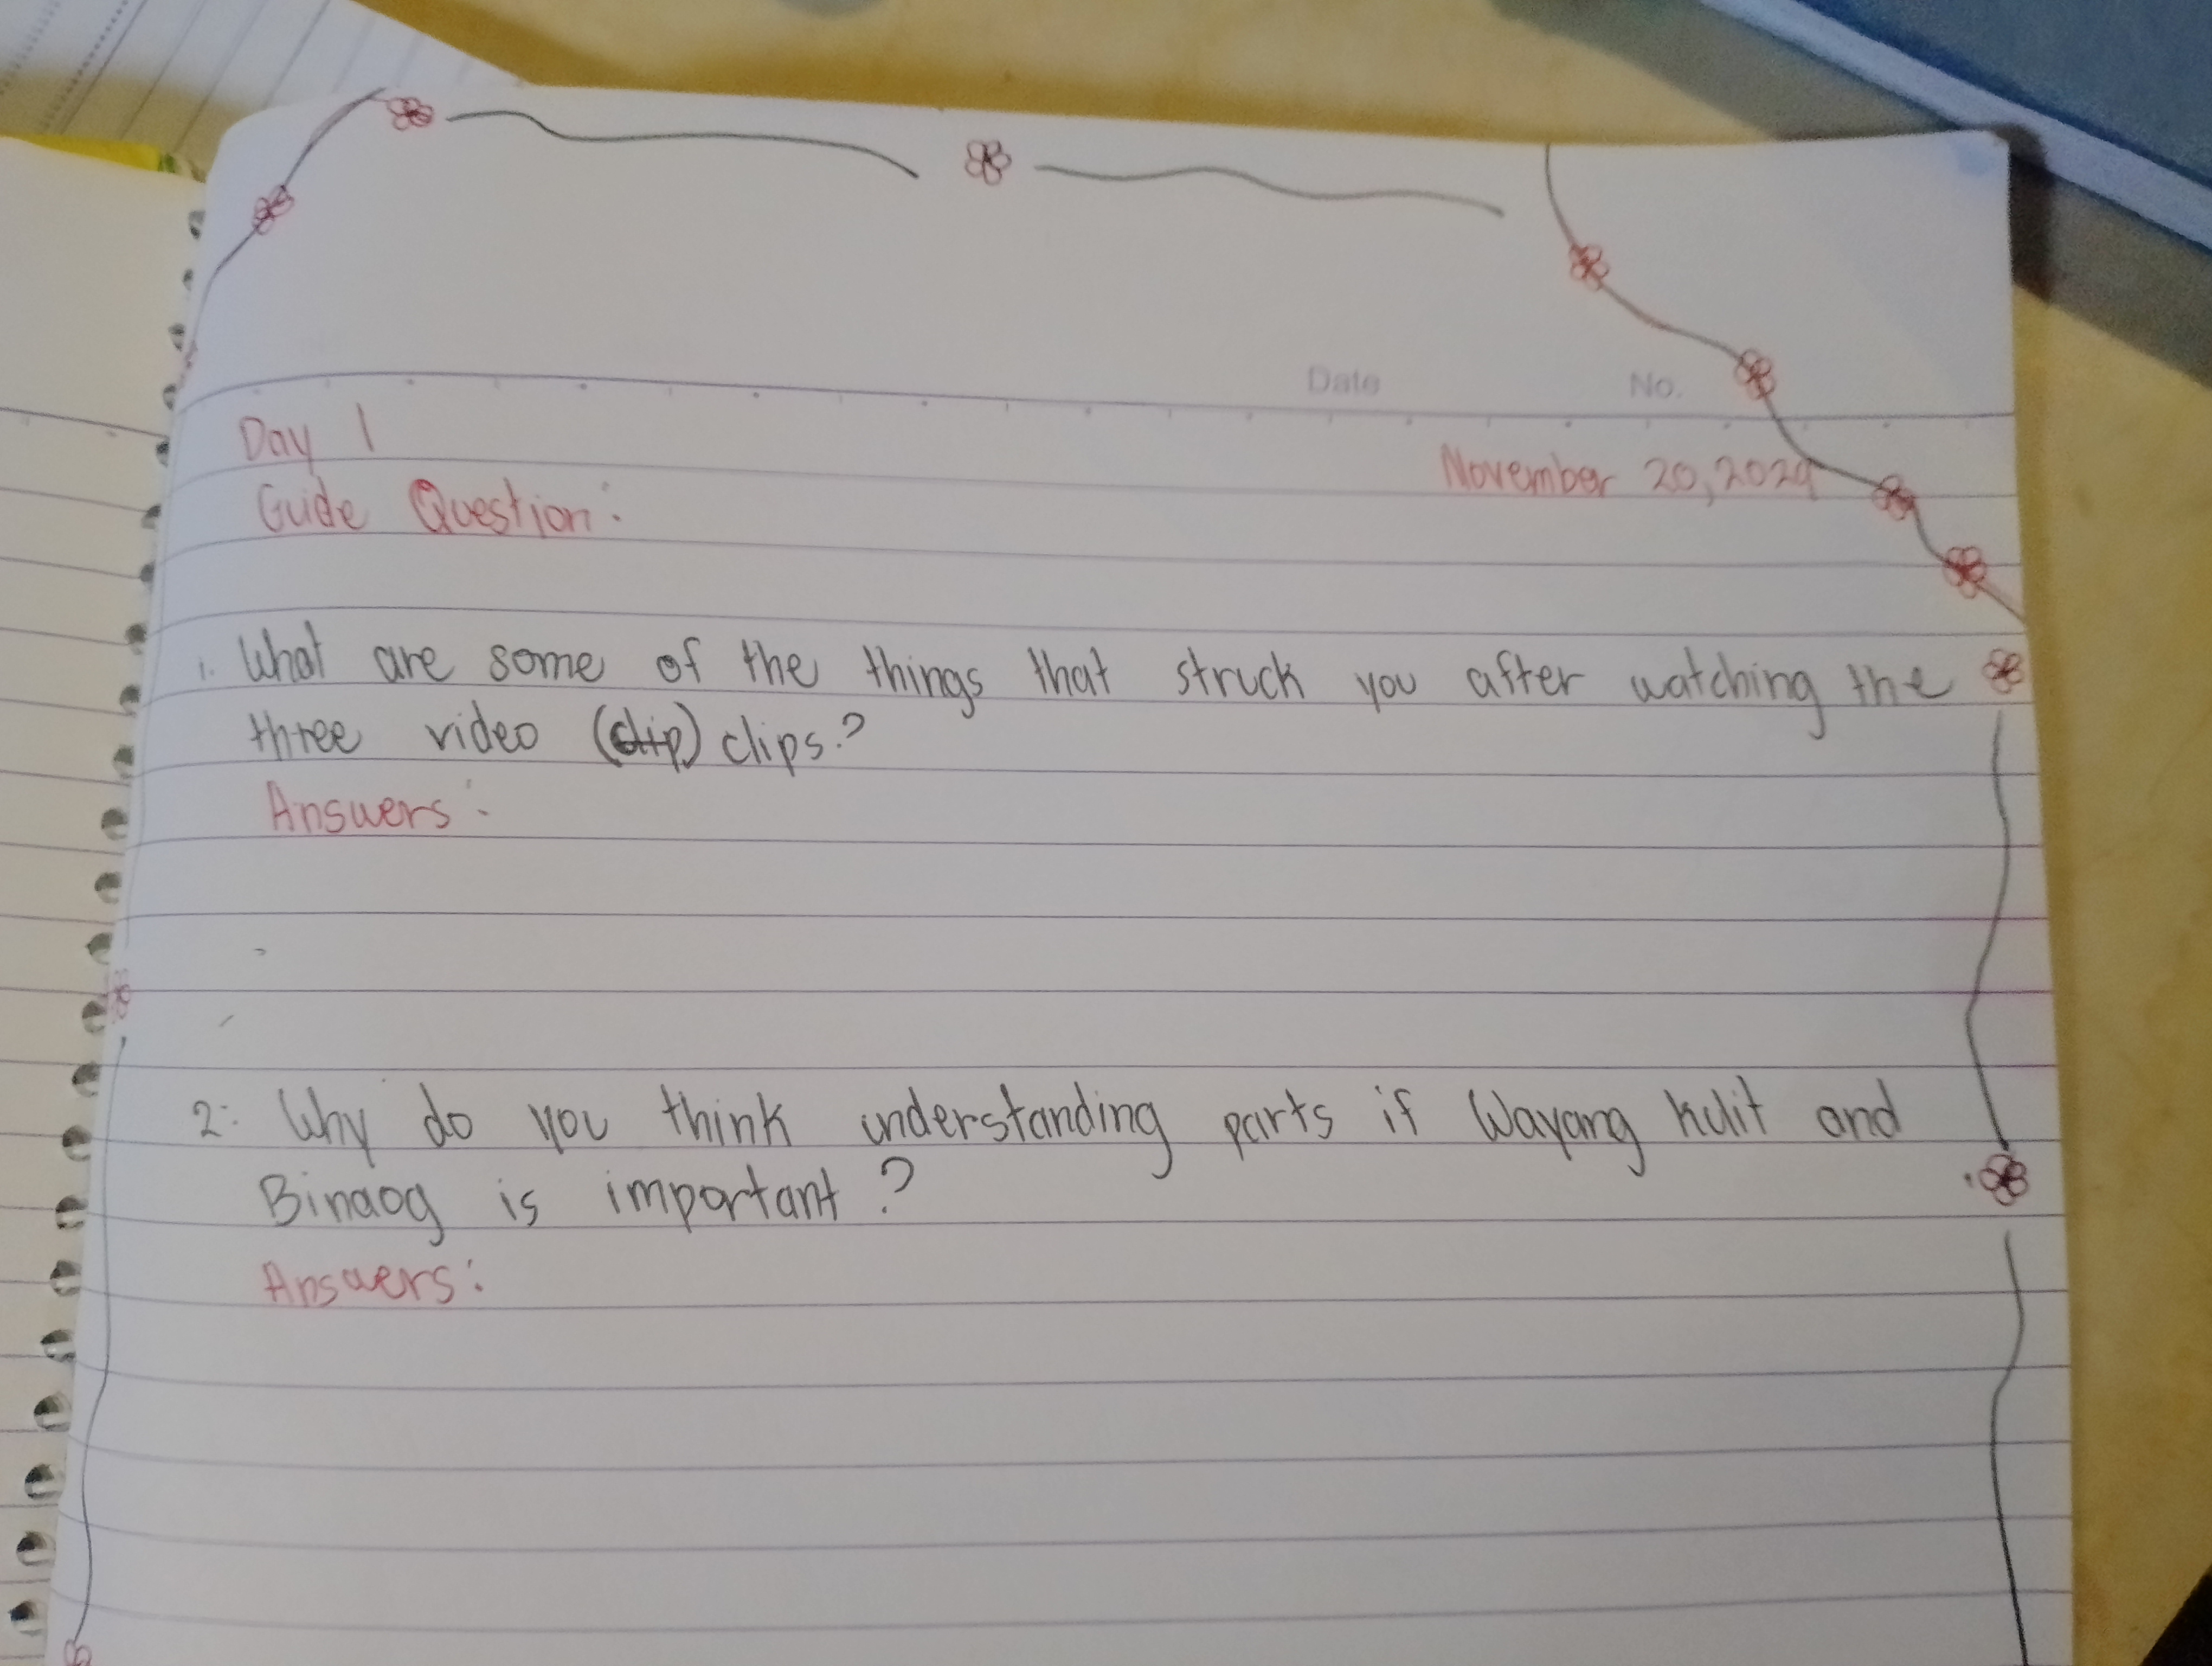 Date No.
Day 1
November 20, 2024
Guide Question:
1. What are some of the things that struck you after watching the
three video (clip) clips?
Answers:
2: Why do you think understanding parts if Wayang kulit and
Binaog is important?
Answers: